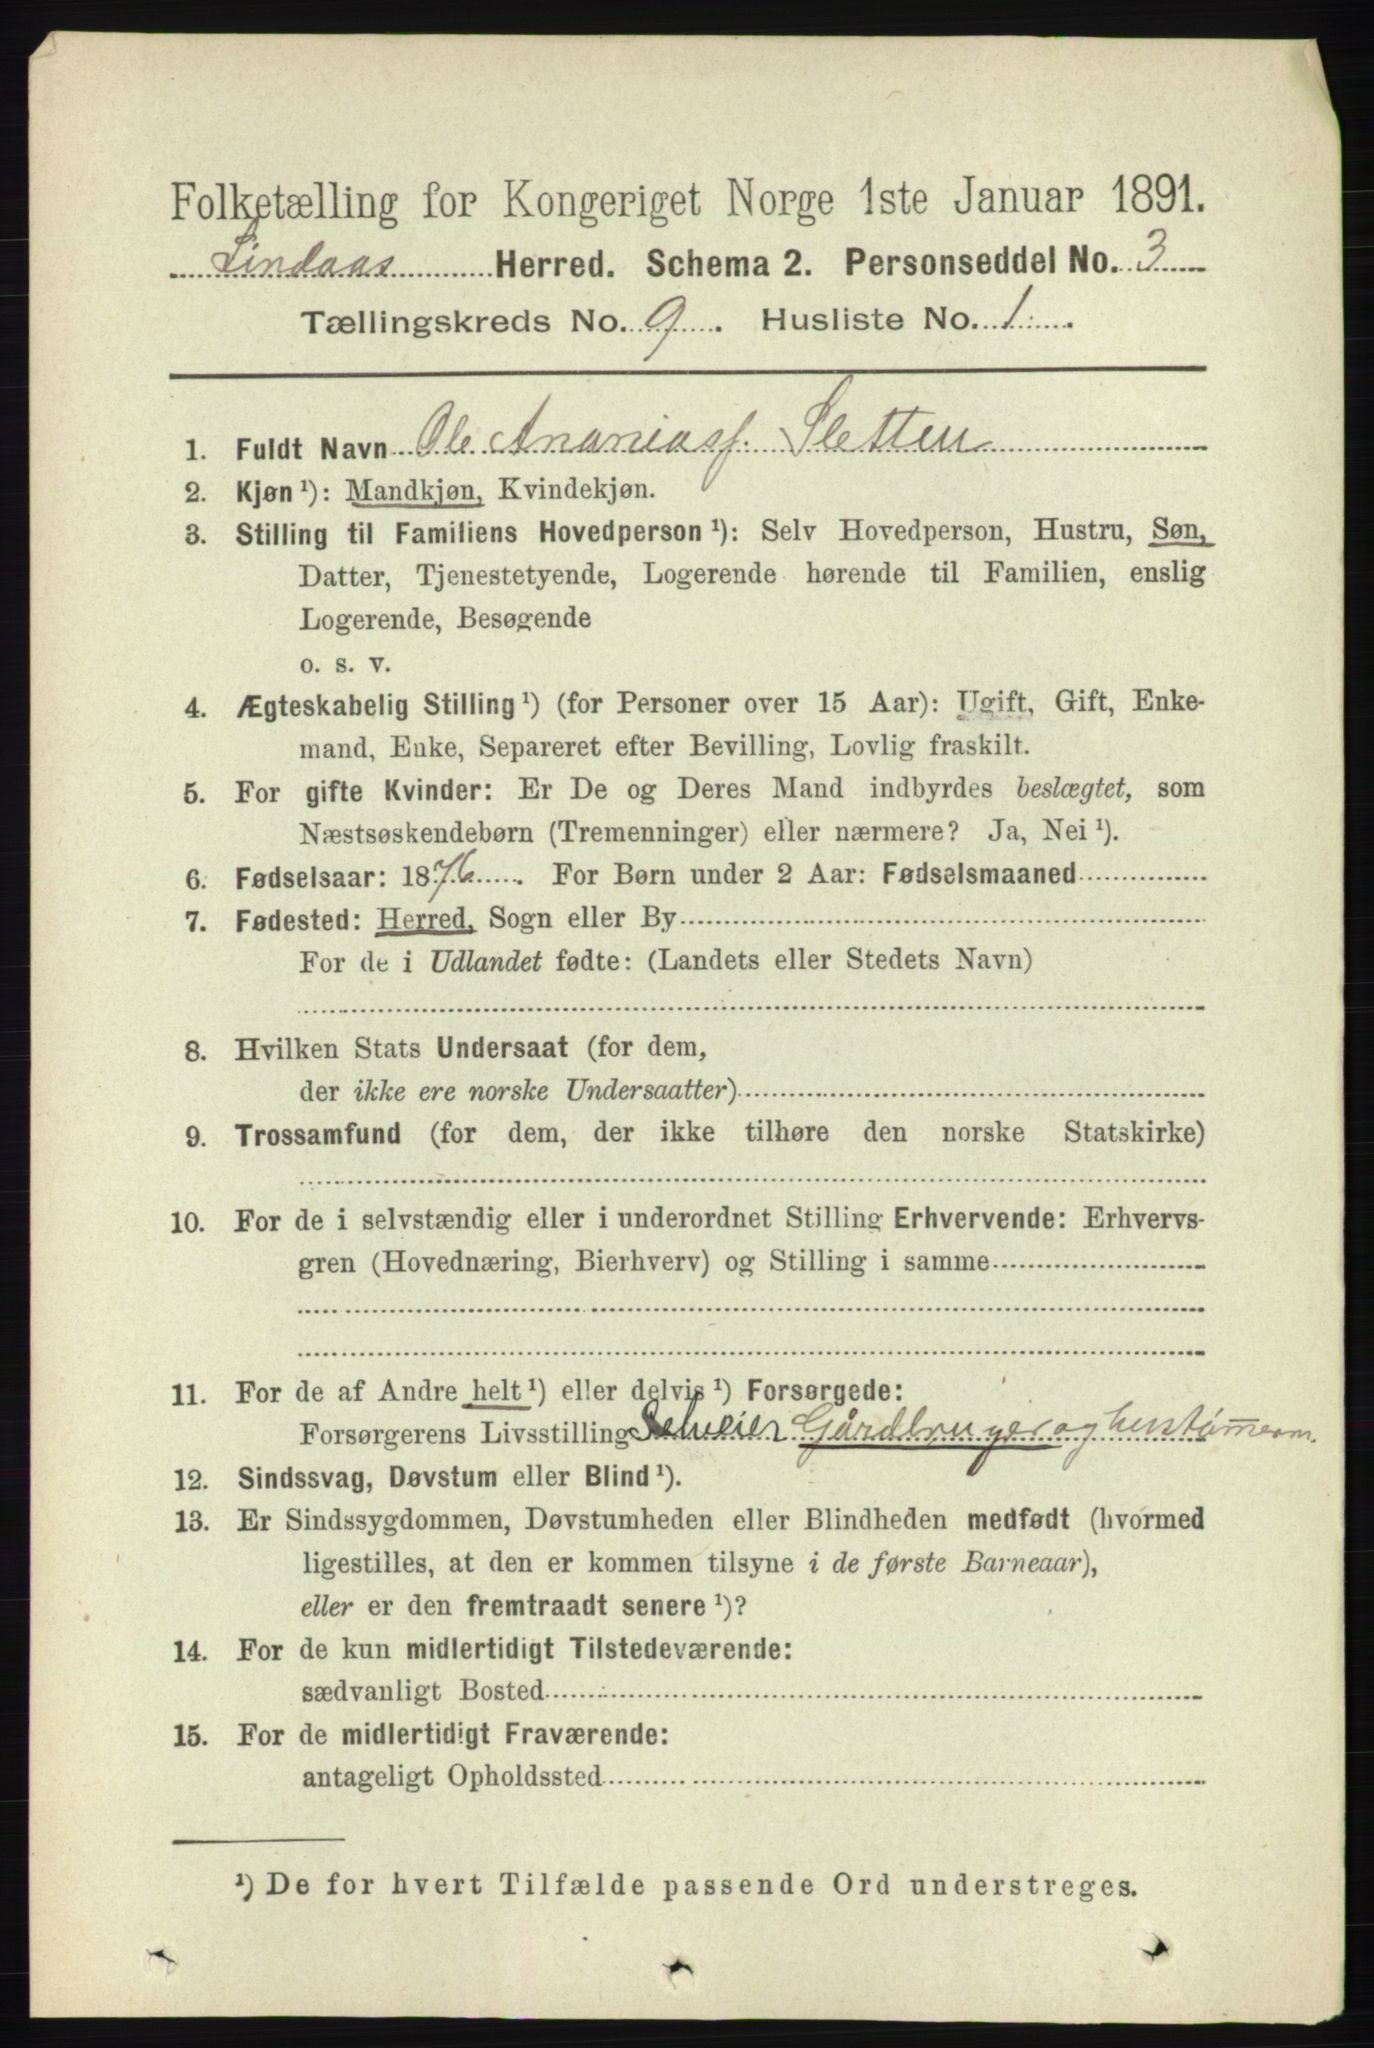 Folketælling for Kongeriget Norge 1ste Januar 1891.
Lindaas Herred. Schema 2. Personseddel No. 3
Tællingskreds No. 9. Husliste No. 1.
1. Fuldt Navn Ole Ananiasf. Sletten
2. Kjøn ¹): Mandkjøn, Kvindekjøn.
3. Stilling til Familiens Hovedperson ¹): Selv Hovedperson, Hustru, Søn,
Datter, Tjenestetyende, Logerende hørende til Familien, enslig
Logerende, Besøgende
o. s. v.
4. Ægteskabelig Stilling ¹) (for Personer over 15 Aar): Ugift, Gift, Enke-
mand, Enke, Separeret efter Bevilling, Lovlig fraskilt.
5. For gifte Kvinder: Er De og Deres Mand indbyrdes beslægtet, som
Næstsøskendebørn (Tremenninger) eller nærmere? Ja, Nei ¹).
6. Fødselsaar: 1876. For Børn under 2 Aar: Fødselsmaaned
7. Fødested: Herred, Sogn eller By
For de i Udlandet fødte: (Landets eller Stedets Navn)
8. Hvilken Stats Undersaat (for dem,
der ikke ere norske Undersaatter)
9. Trossamfund (for dem, der ikke tilhøre den norske Statskirke)
10. For de i selvstændig eller i underordnet Stilling Erhvervende: Erhvervs-
gren (Hovednæring, Bierhverv) og Stilling i samme
11. For de af Andre helt ¹) eller delvis ¹) Forsørgede:
Forsørgerens Livsstilling Selveier Gårdbruger og hustømerm.
12. Sindssvag, Døvstum eller Blind ¹).
13. Er Sindssygdommen, Døvstumheden eller Blindheden medfødt (hvormed
ligestilles, at den er kommen tilsyne i de første Barneaar),
eller er den fremtraadt senere ¹)?
14. For de kun midlertidigt Tilstedeværende:
sædvanligt Bosted
15. For de midlertidigt Fraværende:
antageligt Opholdssted
¹) De for hvert Tilfælde passende Ord understreges.